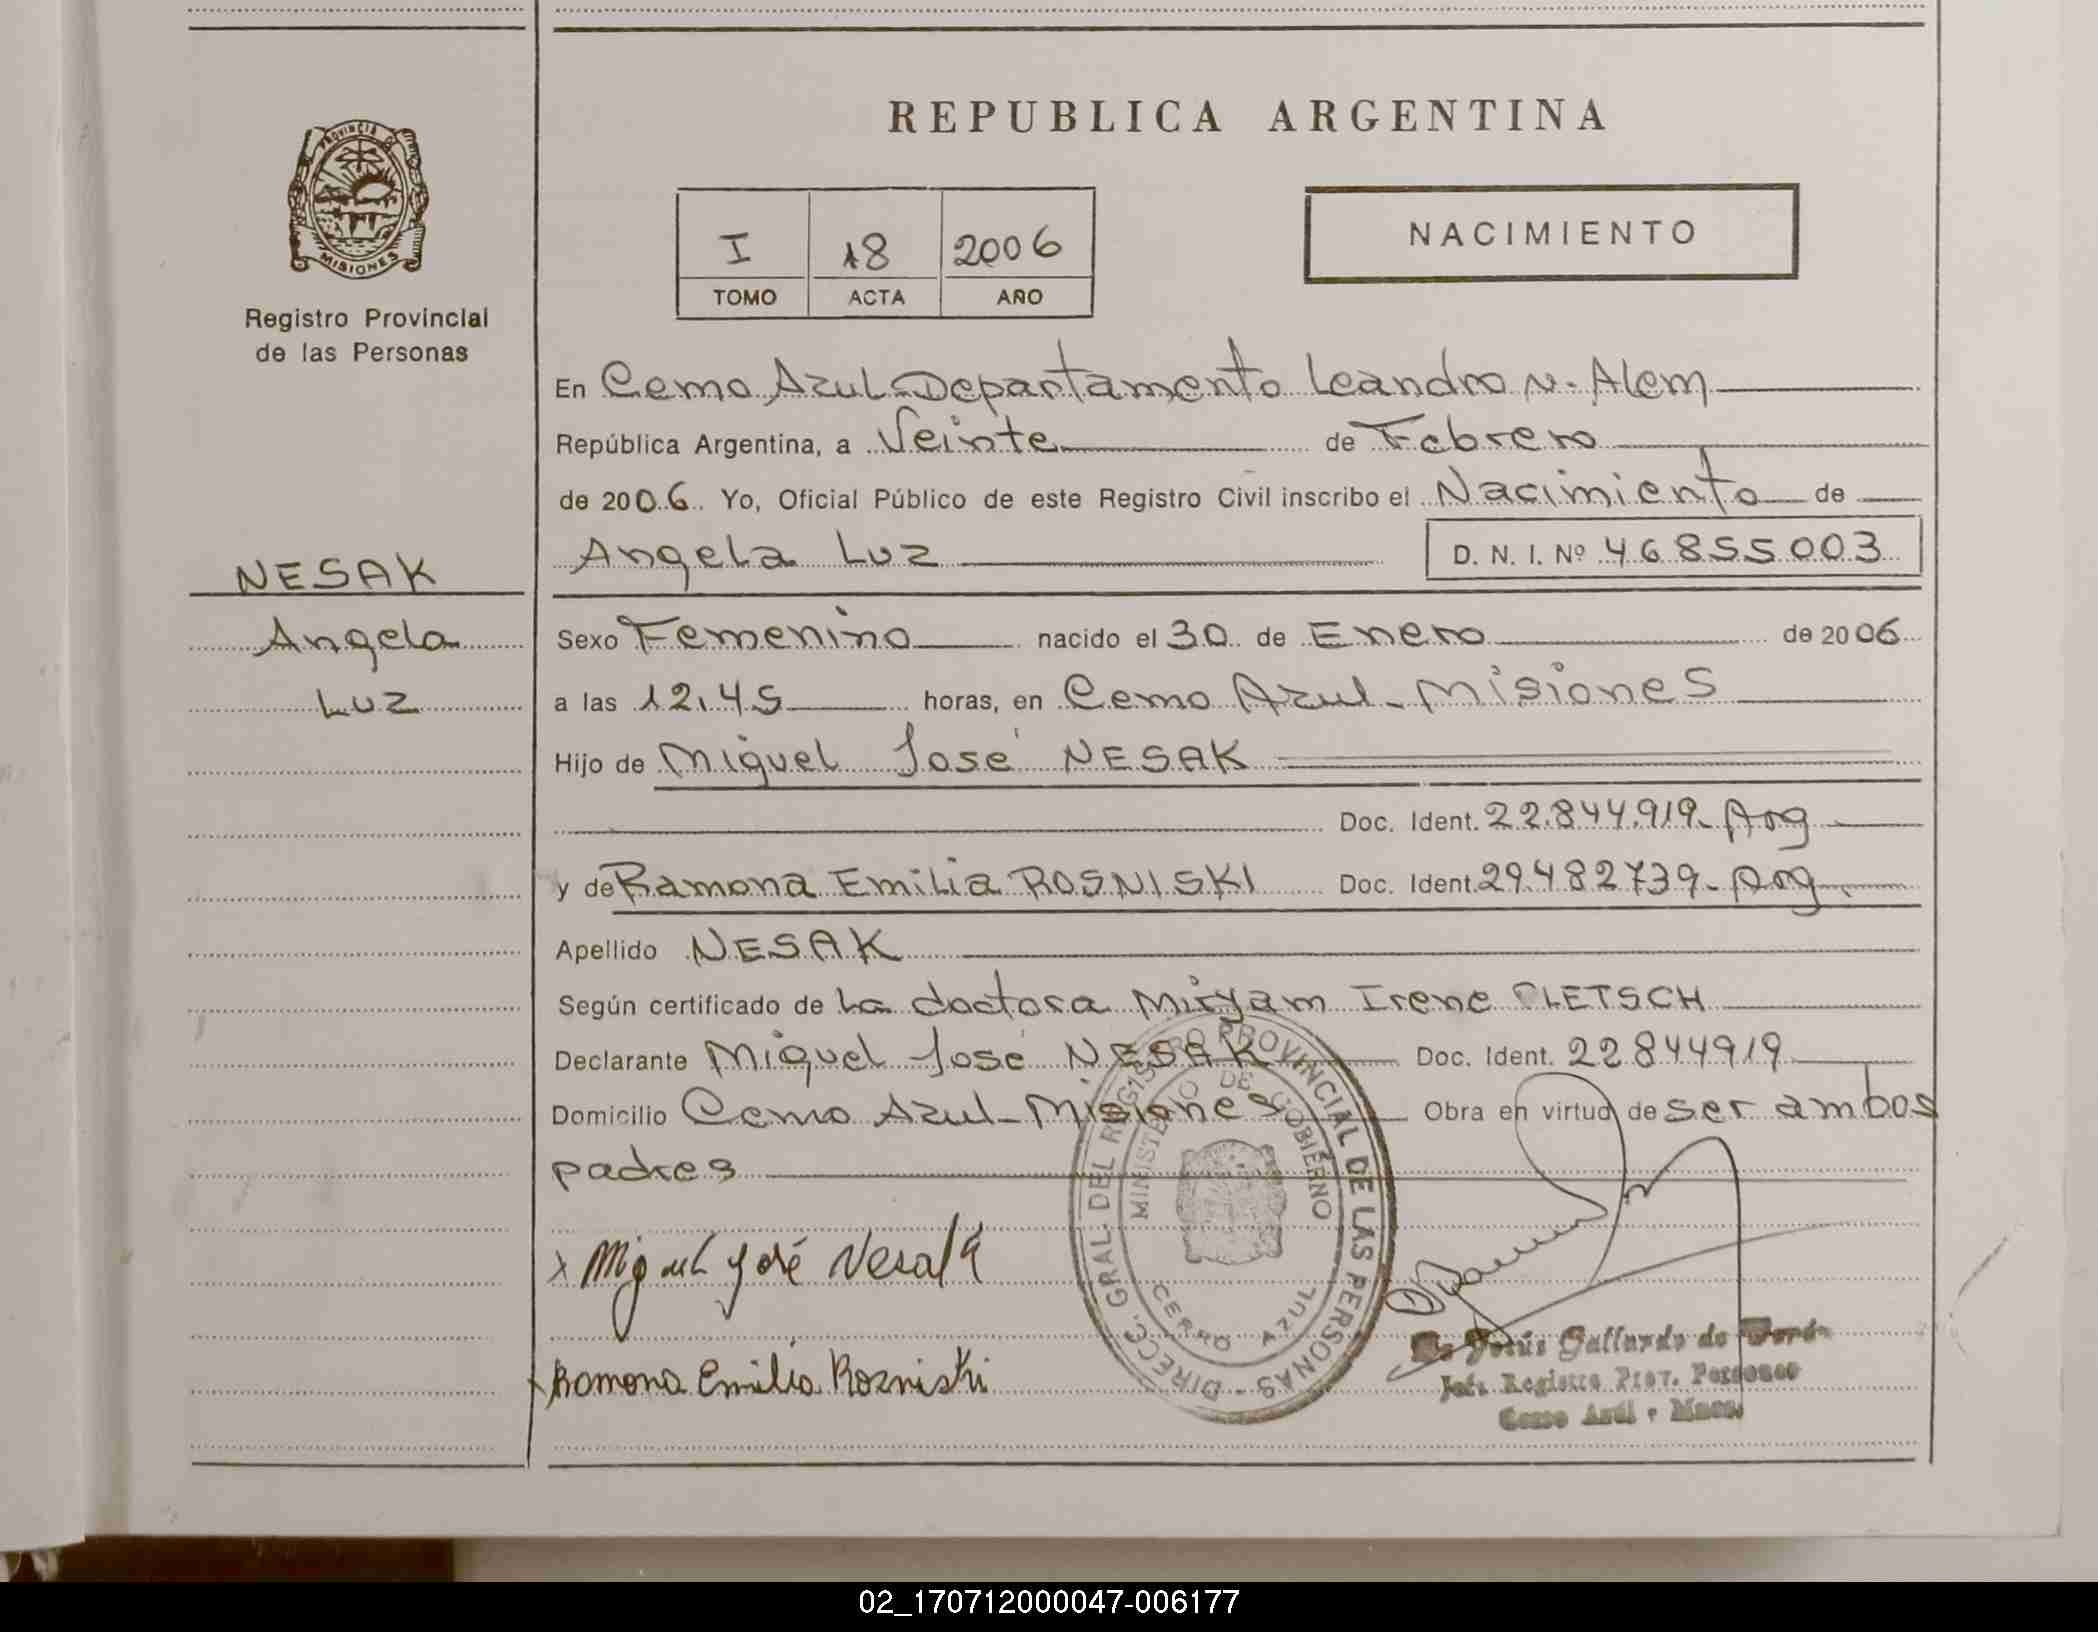 REPUBLICA ARGENTINA
PROVINCIA DE MISIONES
Registro Provincial
de las Personas
I 18 2006
TOMO ACTA AÑO
NACIMIENTO
En Cerro Azul-Departamento Leandro N. Alem
República Argentina, a Veinte de Febrero
de 2006. Yo, Oficial Público de este Registro Civil inscribo el Nacimiento de
Angela Luz D. N. I. Nº 46855003
NESAK
Angela
Luz
Sexo Femenino nacido el 30 de Enero de 2006
a las 12.45 horas, en Cerro Azul-Misiones
Hijo de Miguel José NESAK
Doc. Ident. 22.844.919-Arg
y de Ramona Emilia ROSNISKI Doc. Ident. 29.482739-Arg
Apellido NESAK
Según certificado de La doctora Miryam Irene PLETSCH
Declarante Miguel José NESAK Doc. Ident. 22844919
Domicilio Cerro Azul-Misiones Obra en virtud de ser ambos
padres
DIRECC. GRAL. DEL REGISTRO PROVINCIAL DE LAS PERSONAS
MINISTERIO DE GOBIERNO
CERRO AZUL
x Miguel José Nesak
x Ramona Emilia Rozniski
Jesús Gallardo de
Jefe Registro Prov. Personas
Cerro Azul - Mnes.
02_170712000047-006177